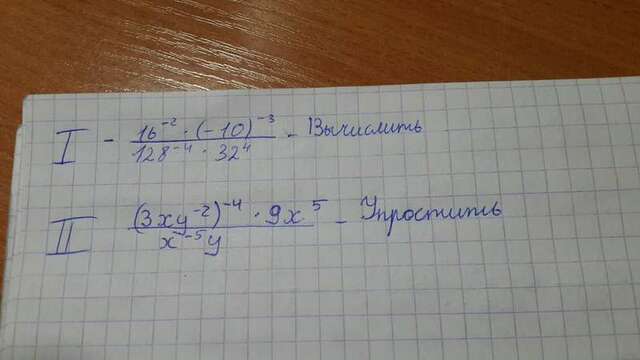 I - 16⁻² · (-10)⁻³ / 128⁻⁴ · 32⁴ - Вычислить
II (3xy⁻²)⁻⁴ · 9x⁵ / x⁻⁵y - Упростить